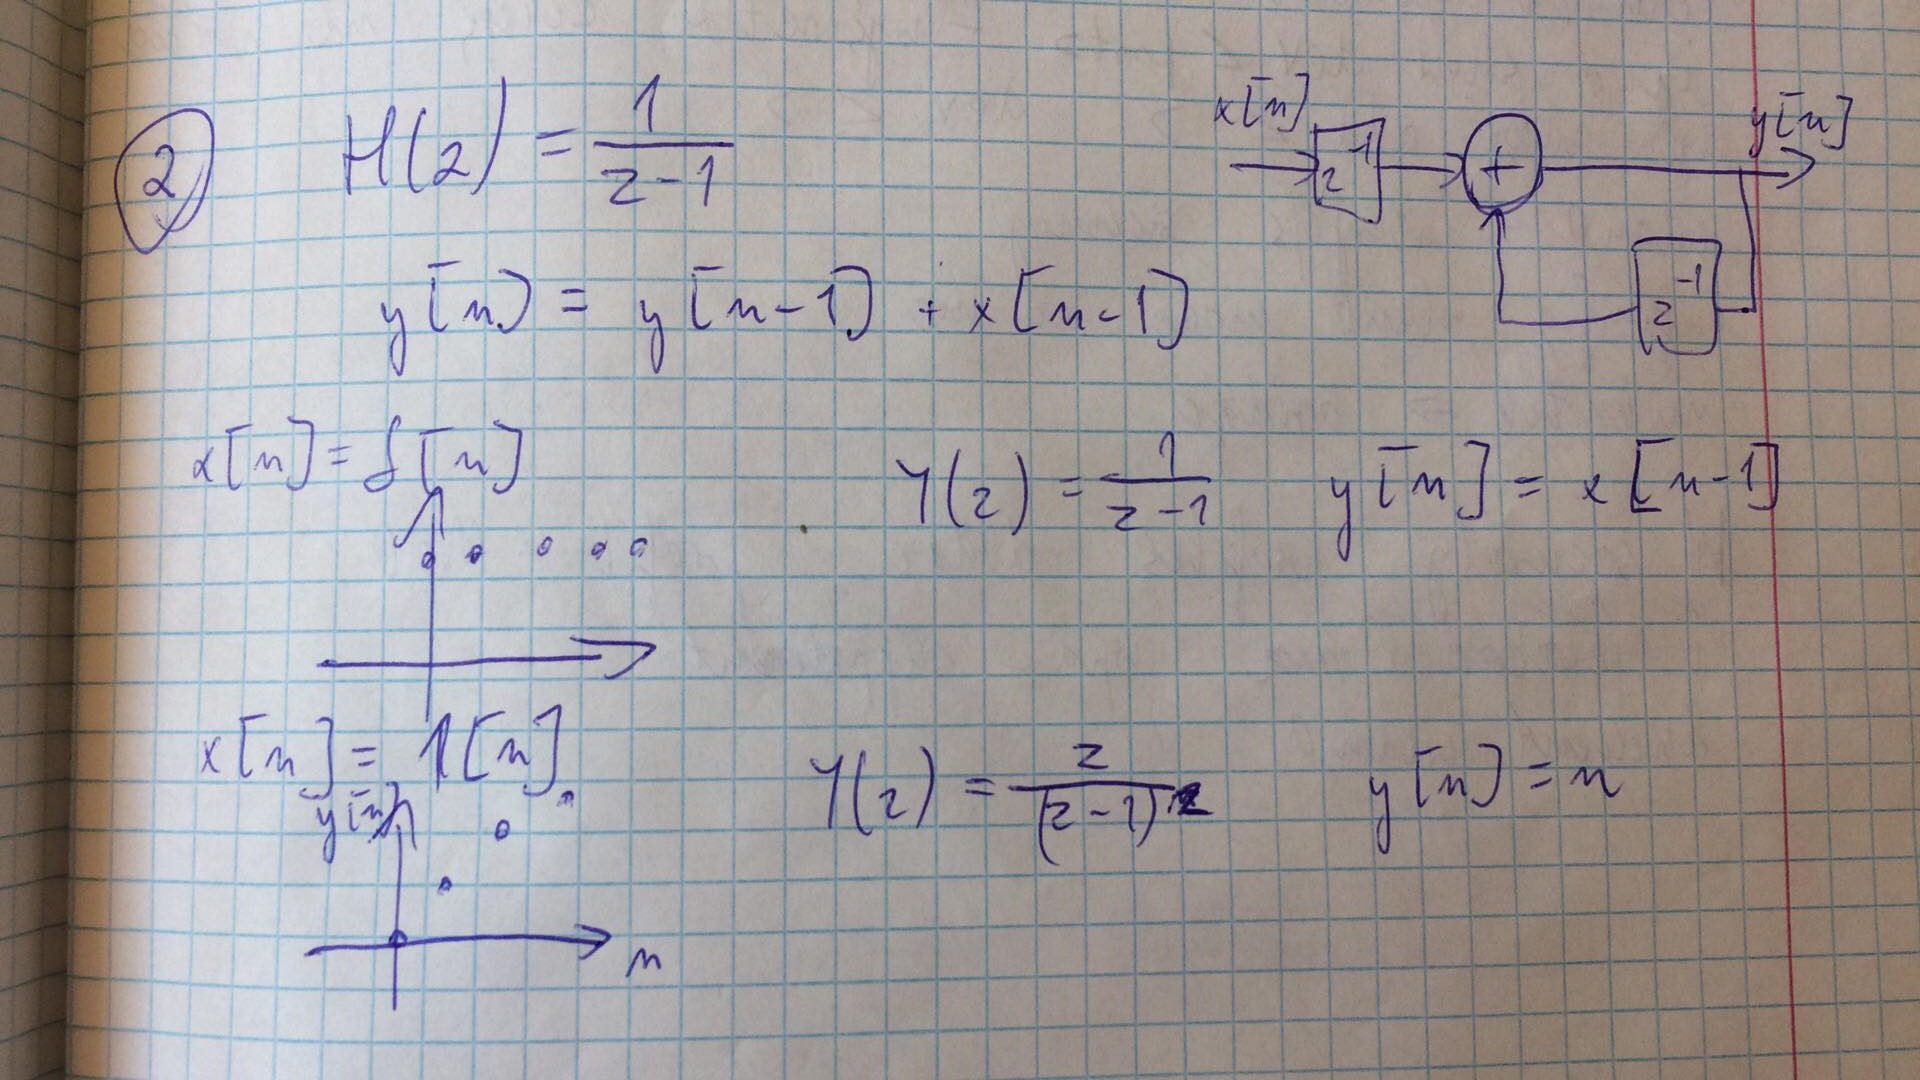 2 H(z) = 1/(z-1)
x[n] z^-1 + y[n]
z^-1
y[n] = y[n-1] + x[n-1]
x[n] = δ[n] Y(z) = 1/(z-1) y[n] = x[n-1]
x[n] = 1[n] Y(z) = z/(z-1)^2 y[n] = n
y[n]
n